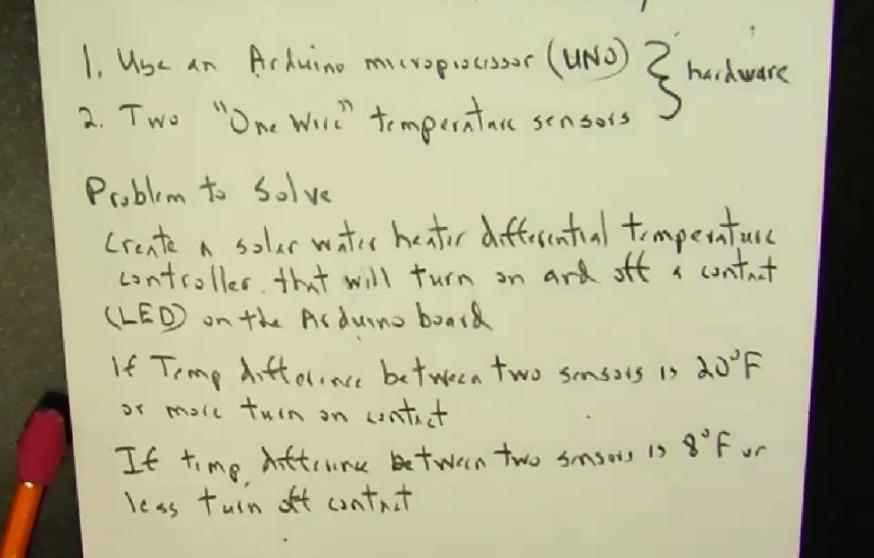 1. Use an Arduino microprocessor (UNO) } hardware
2. Two "One Wire" temperature sensors
Problem to Solve
Create a solar water heater differential temperature
controller that will turn on and off a contact
(LED) on the Arduino board
If Temp difference between two sensors is 20°F
or more turn on contact
If temp, difference between two sensors is 8°F or
less turn off contact